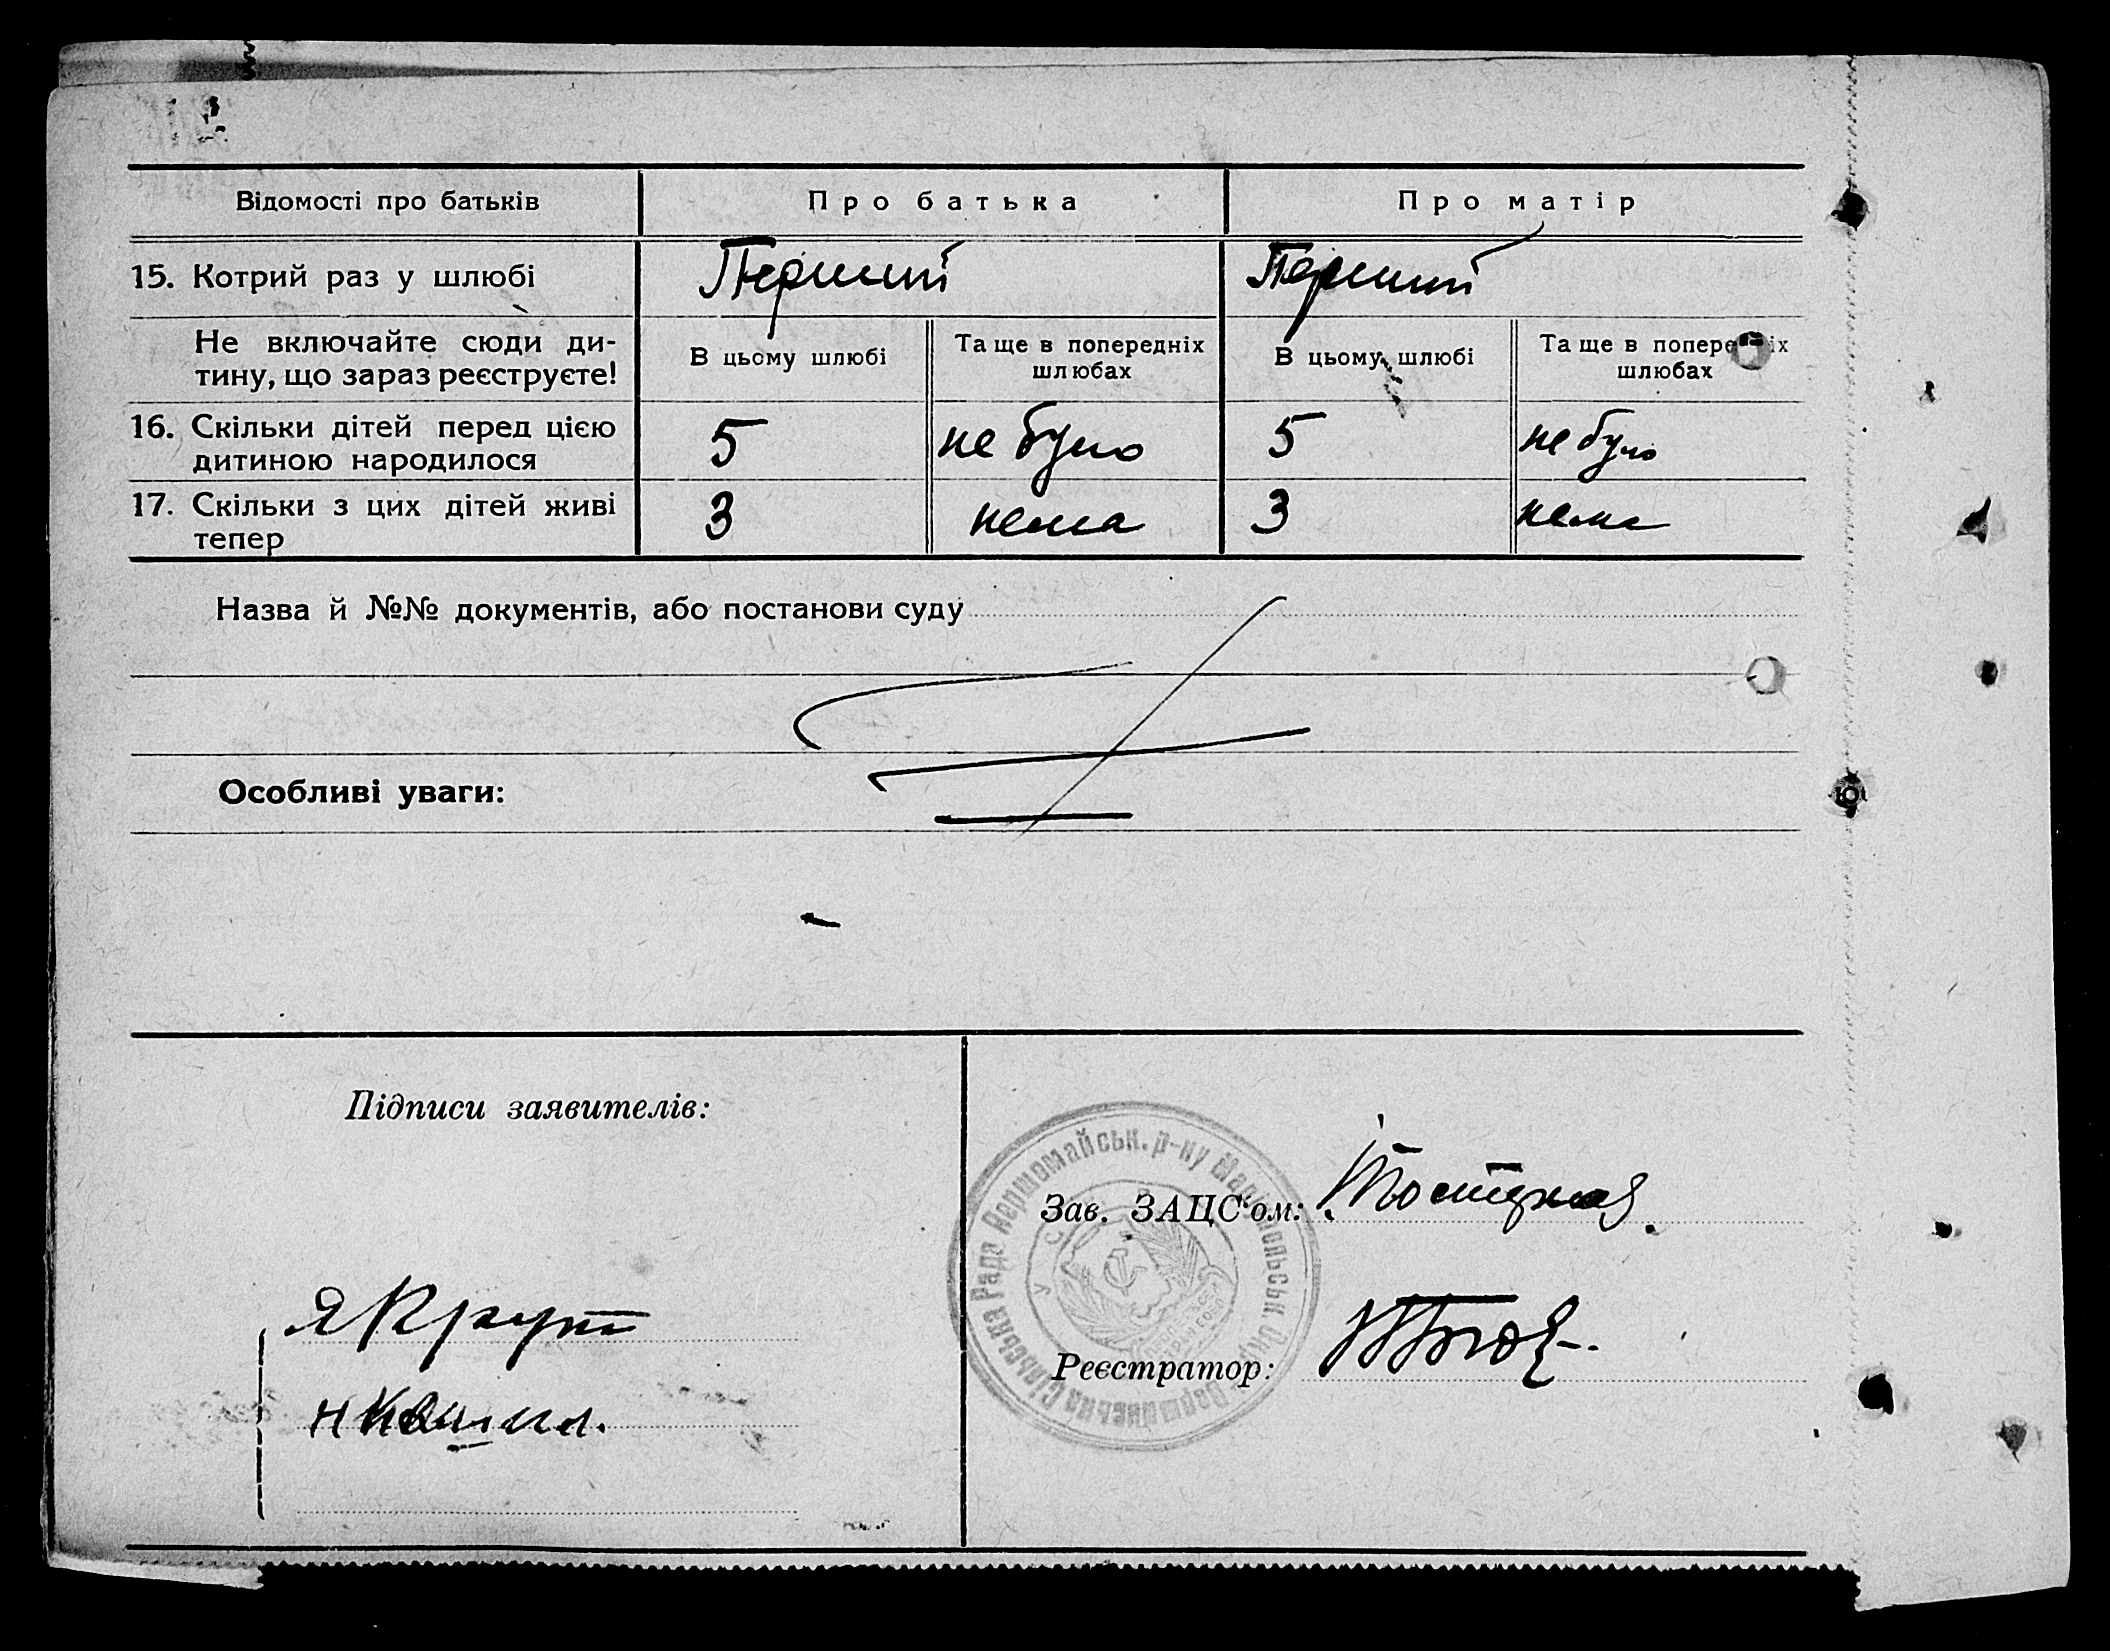 Відомості про батьків
Про батька
Про матір
15. Котрий раз у шлюбі
Перший
Перший
Не включайте сюди ди-
тину, що зараз реєструєте!
В цьому шлюбі
Та ще в попередніх
шлюбах
В цьому шлюбі
Та ще в попередніх
шлюбах
16. Скільки дітей перед цією
дитиною народилося
5
не було
5
не було
17. Скільки з цих дітей живі
тепер
3
нема
3
нема
Назва й №№ документів, або постанови суду
Особливі уваги:
Підписи заявителів:
Зав. ЗАЦС‘ом:
Реєстратор:
Сільська Рада Першомайськ. р-ну Маріюпольськ. Окр.